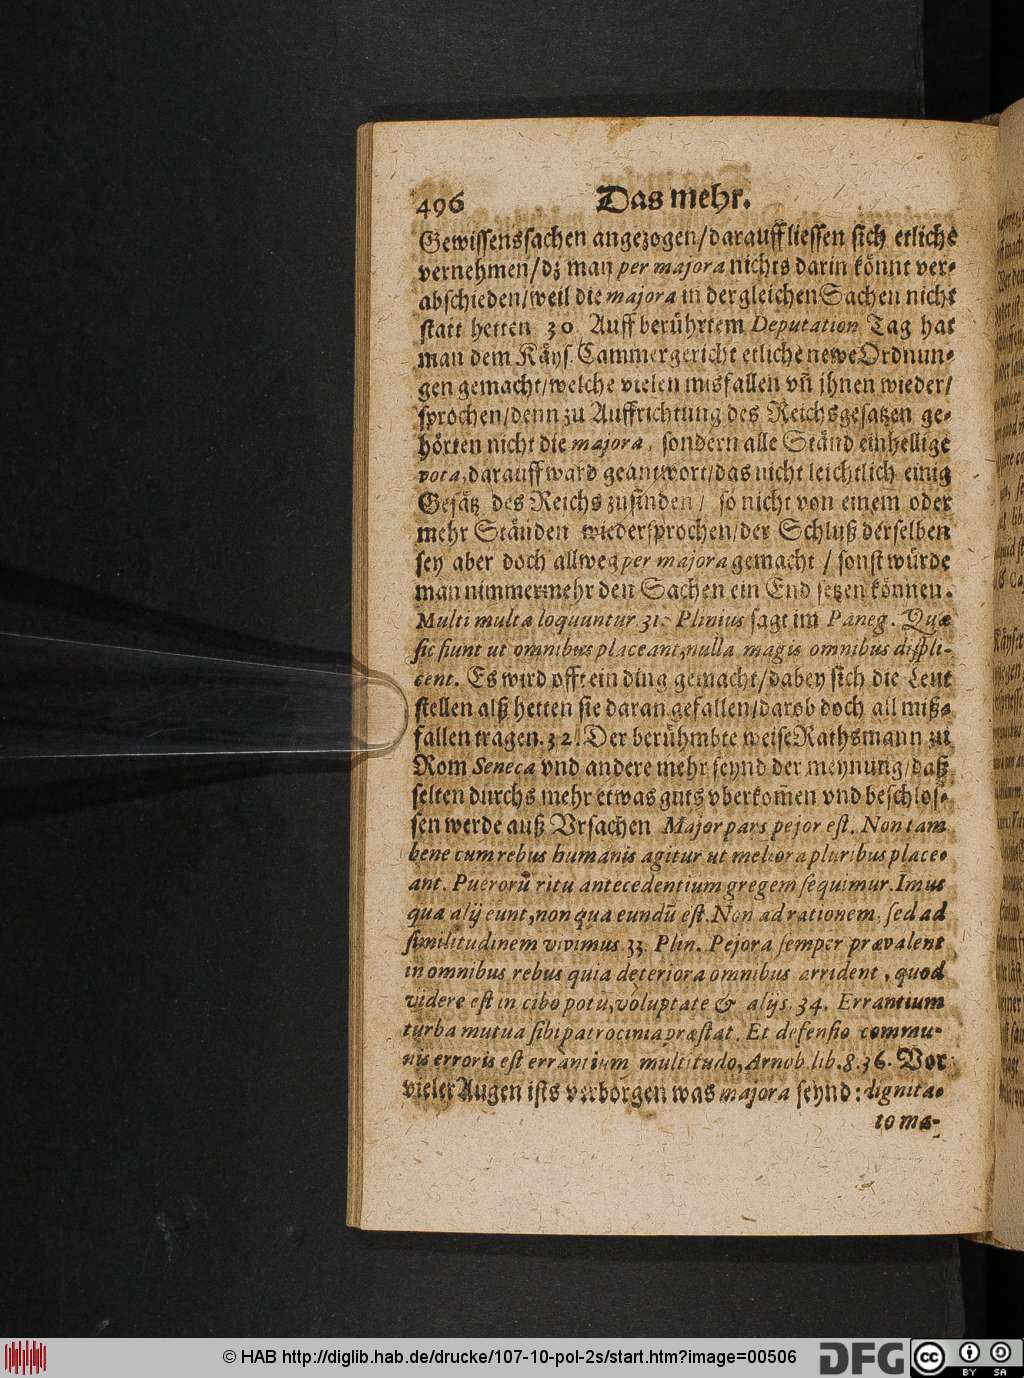 496 Das mehr.
Gewissenssachen angezogen/darauff liessen sich etliche
vernehmen/dz man per majora nichts darin könnt ver-
abschieden/weil die majora in dergleichen Sachen nicht
statt hetten 30 Auff berührtem Deputation Tag hat
man dem Käys. Cammergericht etliche newe Ordnun-
gen gemacht/welche vielen misfallen vñ ihnen wieder/
sprochen/denn zu Auffrichtung des Reichsgesatzen ge-
hörten nicht die majora, sondern alle Ständ einhellige
vota, darauff ward geantwort/das nicht leichtlich einig
Gesätz des Reichs zufinden/ so nicht von einem oder
mehr Ständen wiedersprochen/der Schluß derselben
sey aber doch allweg per majora gemacht / sonst würde
man nimmermehr den Sachen ein End setzen können.
Multi multa loquuntur 31. Plinius sagt im Paneg. Quæ
sic fiunt ut omnibus placeant, nulla magis omnibus displi-
cent. Es wird offt ein ding gemacht/dabey sich die Leut
stellen alß hetten sie daran gefallen/darob doch all miß-
fallen tragen. 32. Der berühmbte weise Rathsmann zu
Rom Seneca vnd andere mehr seynd der meynung/daß
selten durchs mehr etwas guts vberkom̃en vnd beschlos-
sen werde auß Vrsachen Major pars pejor est. Non tam
bene cum rebus humanis agitur ut meliora pluribus place-
ant. Puerorũ ritu antecedentium gregem sequimur. Imus
qua alij eunt, non qua eundũ est. Non ad rationem, sed ad
similitudinem vivimus 33. Plin. Pejora semper prævalent
in omnibus rebus quia deteriora omnibus arrident, quod
videre est in cibo potũ, voluptate & alijs. 34. Errantium
turba mutua sibi patrocinia præstat. Et defensio commu-
nis erroris est errantium multitudo, Arnob. lib. 8. 36. Vor
vieler Augen ists verborgen was majora seynd: dignita-
to ma-
© HAB http://diglib.hab.de/drucke/107-10-pol-2s/start.htm?image=00506
DFG
cc
BY SA